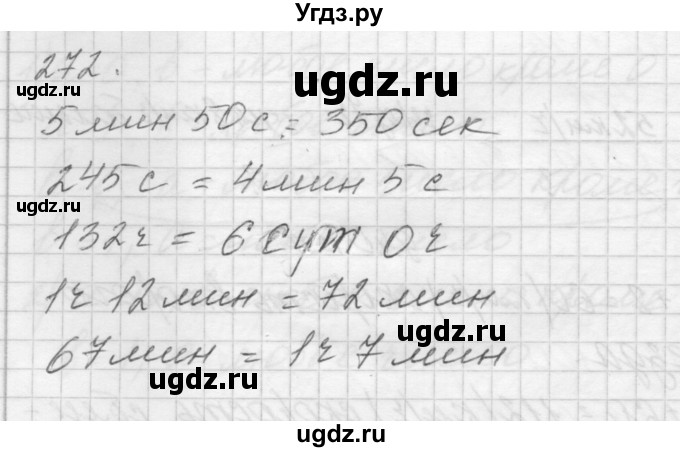 Угдз.ру
272.
ugdz.ru
5 мин 50 с = 350 сек
ugdz.ru
245 с = 4 мин 5 с
ugdz.ru
132 ч = 6 сут 0 ч
1 ч 12 мин = 72 мин
ugdz.ru
67 мин = 1 ч 7 мин
ugdz.ru
ugdz.ru